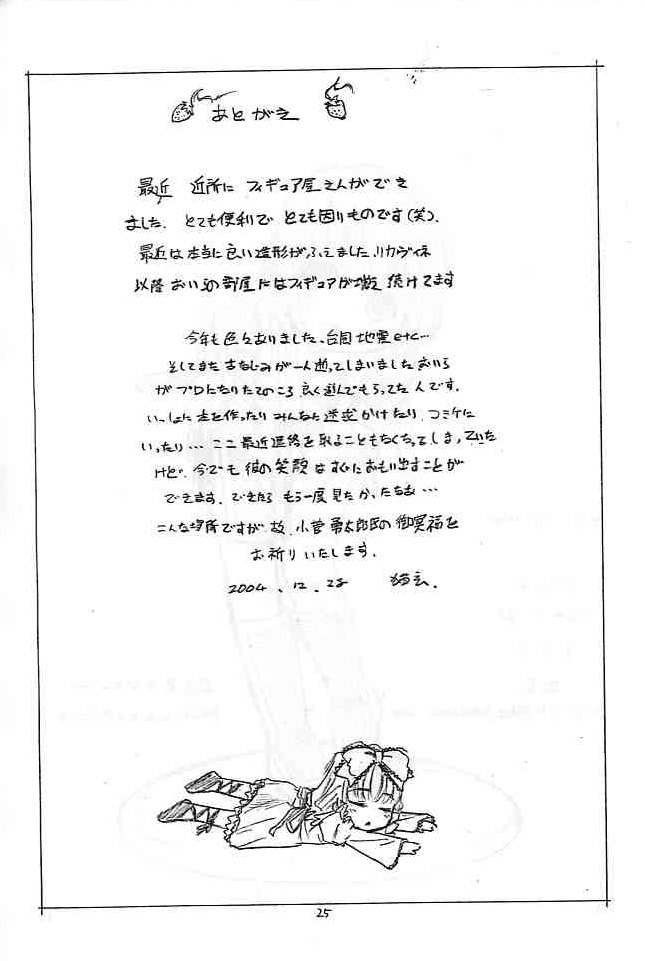 あとがき
最近 近所に フィギュア屋さんができ
ました。とても便利で とても困りものです(笑)。
最近は本当に良い造形がふえました。リカヴィネ
以降 おいらの部屋にはフィギュアが増え続けてます
今年も色々ありました、台風 地震 etc…
そしてまた古なじみが一人逝ってしまいました おいら
がプロになりたてのころ 良く遊んでもらってた人です。
いっしょに本を作ったり みんなに迷惑かけたり、コミケに
いったり… ここ最近連絡を取ることもなくなってしまっていた
けど、今でも彼の笑顔はすぐにおもい出すことが
できます。できたら もう一度見たかったなぁ…
こんな場所ですが 故、小菅 勇太郎氏の御冥福を
お祈りいたします。
2004、12、28
25